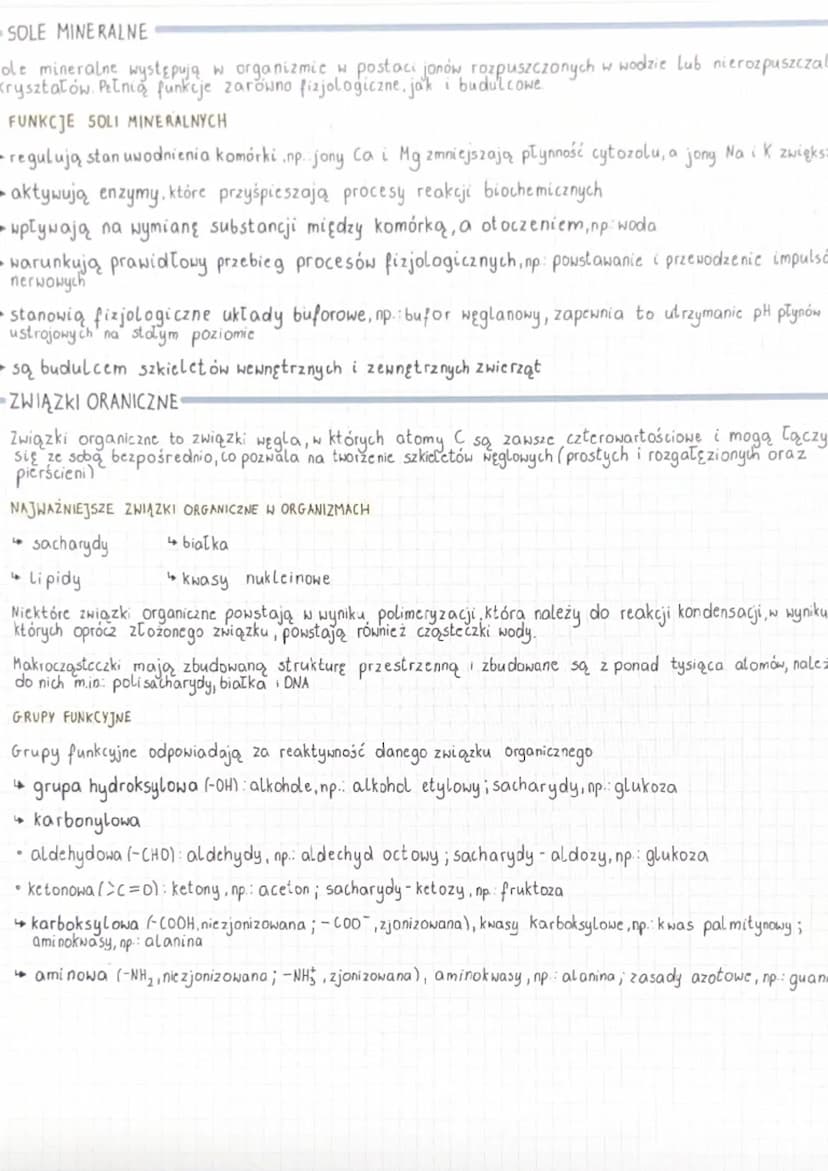 SOLE MINERALNE
ole mineralne występują w organizmie w postaci jonów rozpuszczonych w wodzie lub nierozpuszczal
kryształów. Pełnią funkcje zarówno fizjologiczne, jak i budulcowe.
FUNKCJE SOLI MINERALNYCH
- regulują stan uwodnienia komórki, np. jony Ca i Mg zmniejszają płynność cytozolu, a jony Na i K zwięks
- aktywują enzymy, które przyśpieszają procesy reakcji biochemicznych
- wpływają na wymianę substancji między komórką, a otoczeniem, np. woda
- warunkują prawidłowy przebieg procesów fizjologicznych, np. powstawanie i przewodzenie impulsó
nerwowych
- stanowią fizjologiczne układy buforowe, np.: bufor węglanowy, zapewnia to utrzymanie pH płynów
ustrojowych na stałym poziomie
- są budulcem szkieletów wewnętrznych i zewnętrznych zwierząt
ZWIĄZKI ORANICZNE
Związki organiczne to związki węgla, w których atomy C są zawsze czterowartościowe i mogą łączy
się ze sobą bezpośrednio, co pozwala na tworzenie szkieletów węglowych (prostych i rozgałęzionych oraz
pierścieni)
NAJWAŻNIEJSZE ZWIĄZKI ORGANICZNE W ORGANIZMACH
↳ sacharydy ↳ białka
↳ lipidy ↳ kwasy nukleinowe
Niektóre związki organiczne powstają w wyniku polimeryzacji, która należy do reakcji kondensacji, w wyniku
których oprócz złożonego związku, powstają również cząsteczki wody.
Makrocząsteczki mają zbudowaną strukturę przestrzenną i zbudowane są z ponad tysiąca atomów, należ
do nich m.in: polisacharydy, białka i DNA
GRUPY FUNKCYJNE
Grupy funkcyjne odpowiadają za reaktywność danego związku organicznego
↳ grupa hydroksylowa (-OH): alkohole, np.: alkohol etylowy; sacharydy, np.: glukoza
↳ karbonylowa
• aldehydowa (-CHO): aldehydy, np.: aldechyd octowy; sacharydy - aldozy, np.: glukoza
• ketonowa (>C=O): ketony, np.: aceton; sacharydy - ketozy, np: fruktoza
↳ karboksylowa (-COOH, niezjonizowana; -COO⁻, zjonizowana), kwasy karboksylowe, np.: kwas palmitynowy;
aminokwasy, np.: alanina
↳ aminowa (-NH₂, niezjonizowana; -NH₃⁺, zjonizowana), aminokwasy, np.: alanina; zasady azotowe, np.: guan